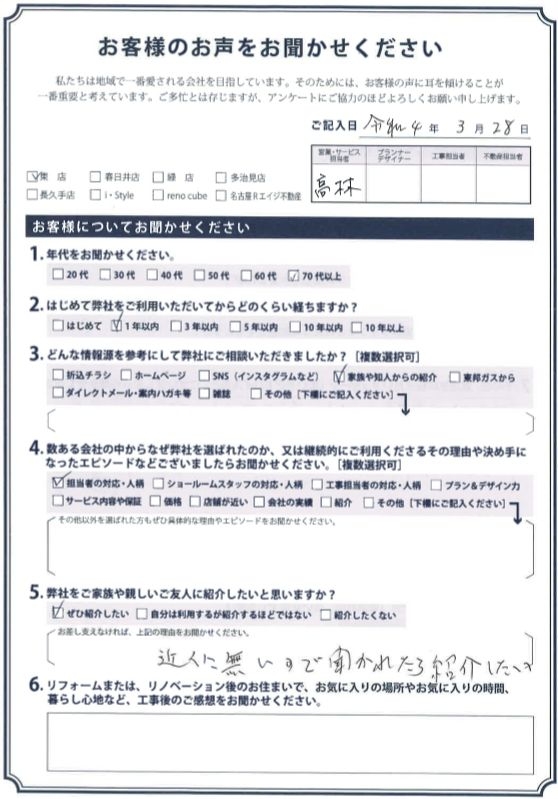 お客様のお声をお聞かせください
私たちは地域で一番愛される会社を目指しています。そのためには、お客様の声に耳を傾けることが
一番重要と考えています。ご多忙とは存じますが、アンケートにご協力のほどよろしくお願い申し上げます。
ご記入日 令和4年 3月28日
営業・サービス担当者 プランナーデザイナー 工事担当者 不動産担当者
高林
☑東 店 □春日井店 □緑 店 □多治見店
□長久手店 □i・Style □reno cube □名古屋Rエイジ不動産
お客様についてお聞かせください
1. 年代をお聞かせください。
□20代 □30代 □40代 □50代 □60代 ☑70代以上
2. はじめて弊社をご利用いただいてからどのくらい経ちますか?
□はじめて ☑1年以内 □3年以内 □5年以内 □10年以内 □10年以上
3. どんな情報源を参考にして弊社にご相談いただきましたか?［複数選択可］
□折込チラシ □ホームページ □SNS（インスタグラムなど） ☑家族や知人からの紹介 □東邦ガスから
□ダイレクトメール・案内ハガキ等 □雑誌 □その他［下欄にご記入ください］
4. 数ある会社の中からなぜ弊社を選ばれたのか、又は継続的にご利用くださるその理由や決め手に
なったエピソードなどございましたらお聞かせください。［複数選択可］
☑担当者の対応・人柄 □ショールームスタッフの対応・人柄 □工事担当者の対応・人柄 □プラン＆デザイン力
□サービス内容や保証 □価格 □店舗が近い □会社の実績 □紹介 □その他［下欄にご記入ください］
その他以外を選ばれた方もぜひ具体的な理由やエピソードをお聞かせください。
5. 弊社をご家族や親しいご友人に紹介したいと思いますか?
☑ぜひ紹介したい □自分は利用するが紹介するほどではない □紹介したくない
お差し支えなければ、上記の理由をお聞かせください。
近人に無いので聞かれたら紹介したい
6. リフォームまたは、リノベーション後のお住まいで、お気に入りの場所やお気に入りの時間、
暮らし心地など、工事後のご感想をお聞かせください。